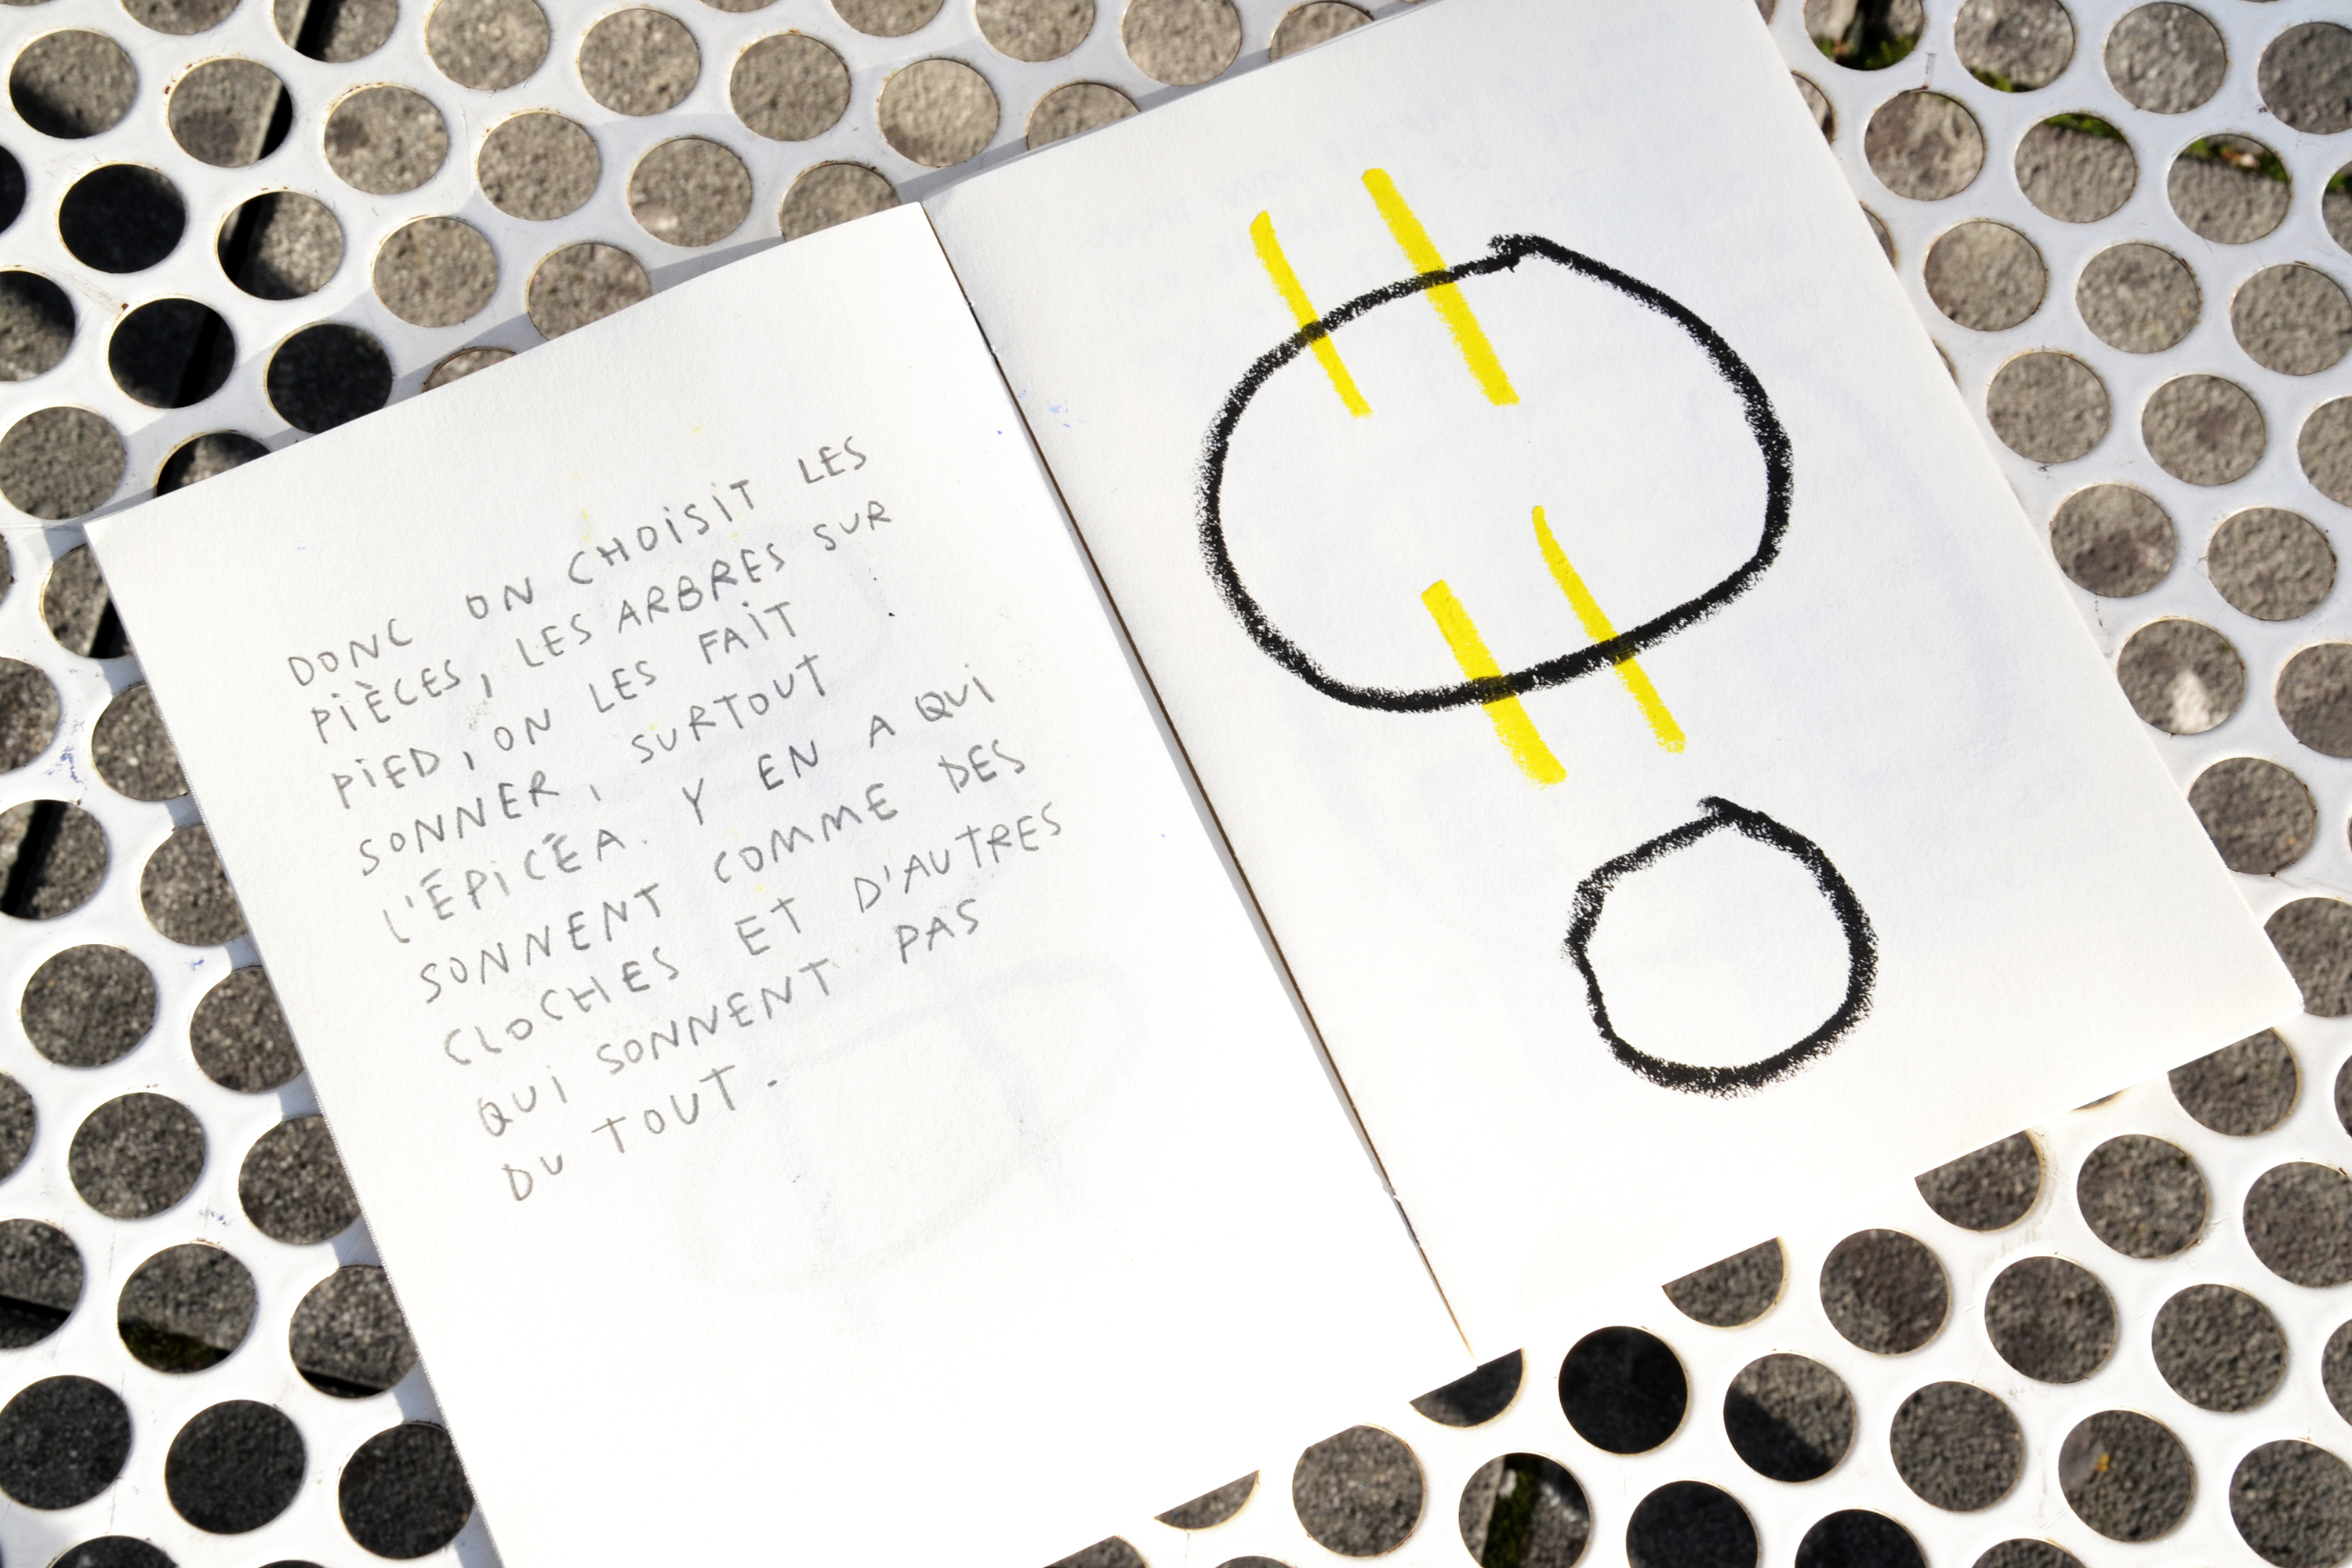 DONC ON CHOISIT LES
PIÈCES, LES ARBRES SUR
PIED, ON LES FAIT
SONNER, SURTOUT
L'ÉPICÉA. Y EN A QUI
SONNENT COMME DES
CLOCHES ET D'AUTRES
QUI SONNENT PAS
DU TOUT.